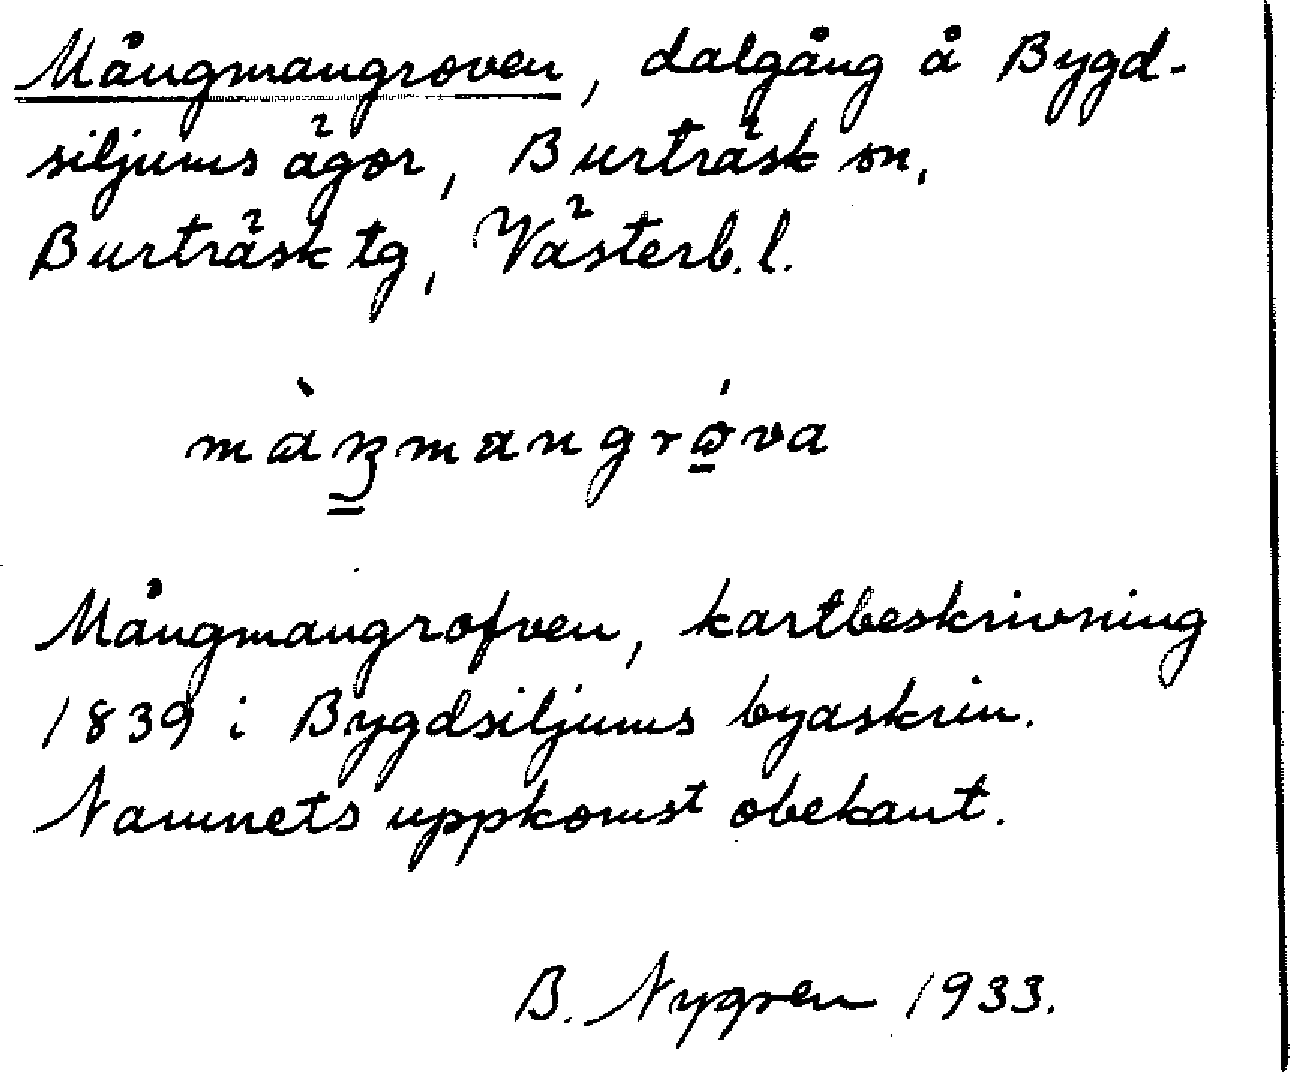 Mångmangroven, dalgång å Bygd-
siljums ägor, Burträsk sn,
Burträsk tg, Västerb. l.
Mångmangrofven, kartbeskrivning
1839 i Bygdsiljums byaskrin.
Namnets uppkomst obekant.
B. Nygren 1933.